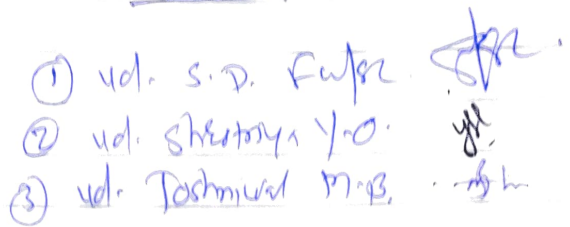 ① Ud. S. D.
② Ud. Shrotriya Y. O.
③ Ud. Toshniwal M. B.